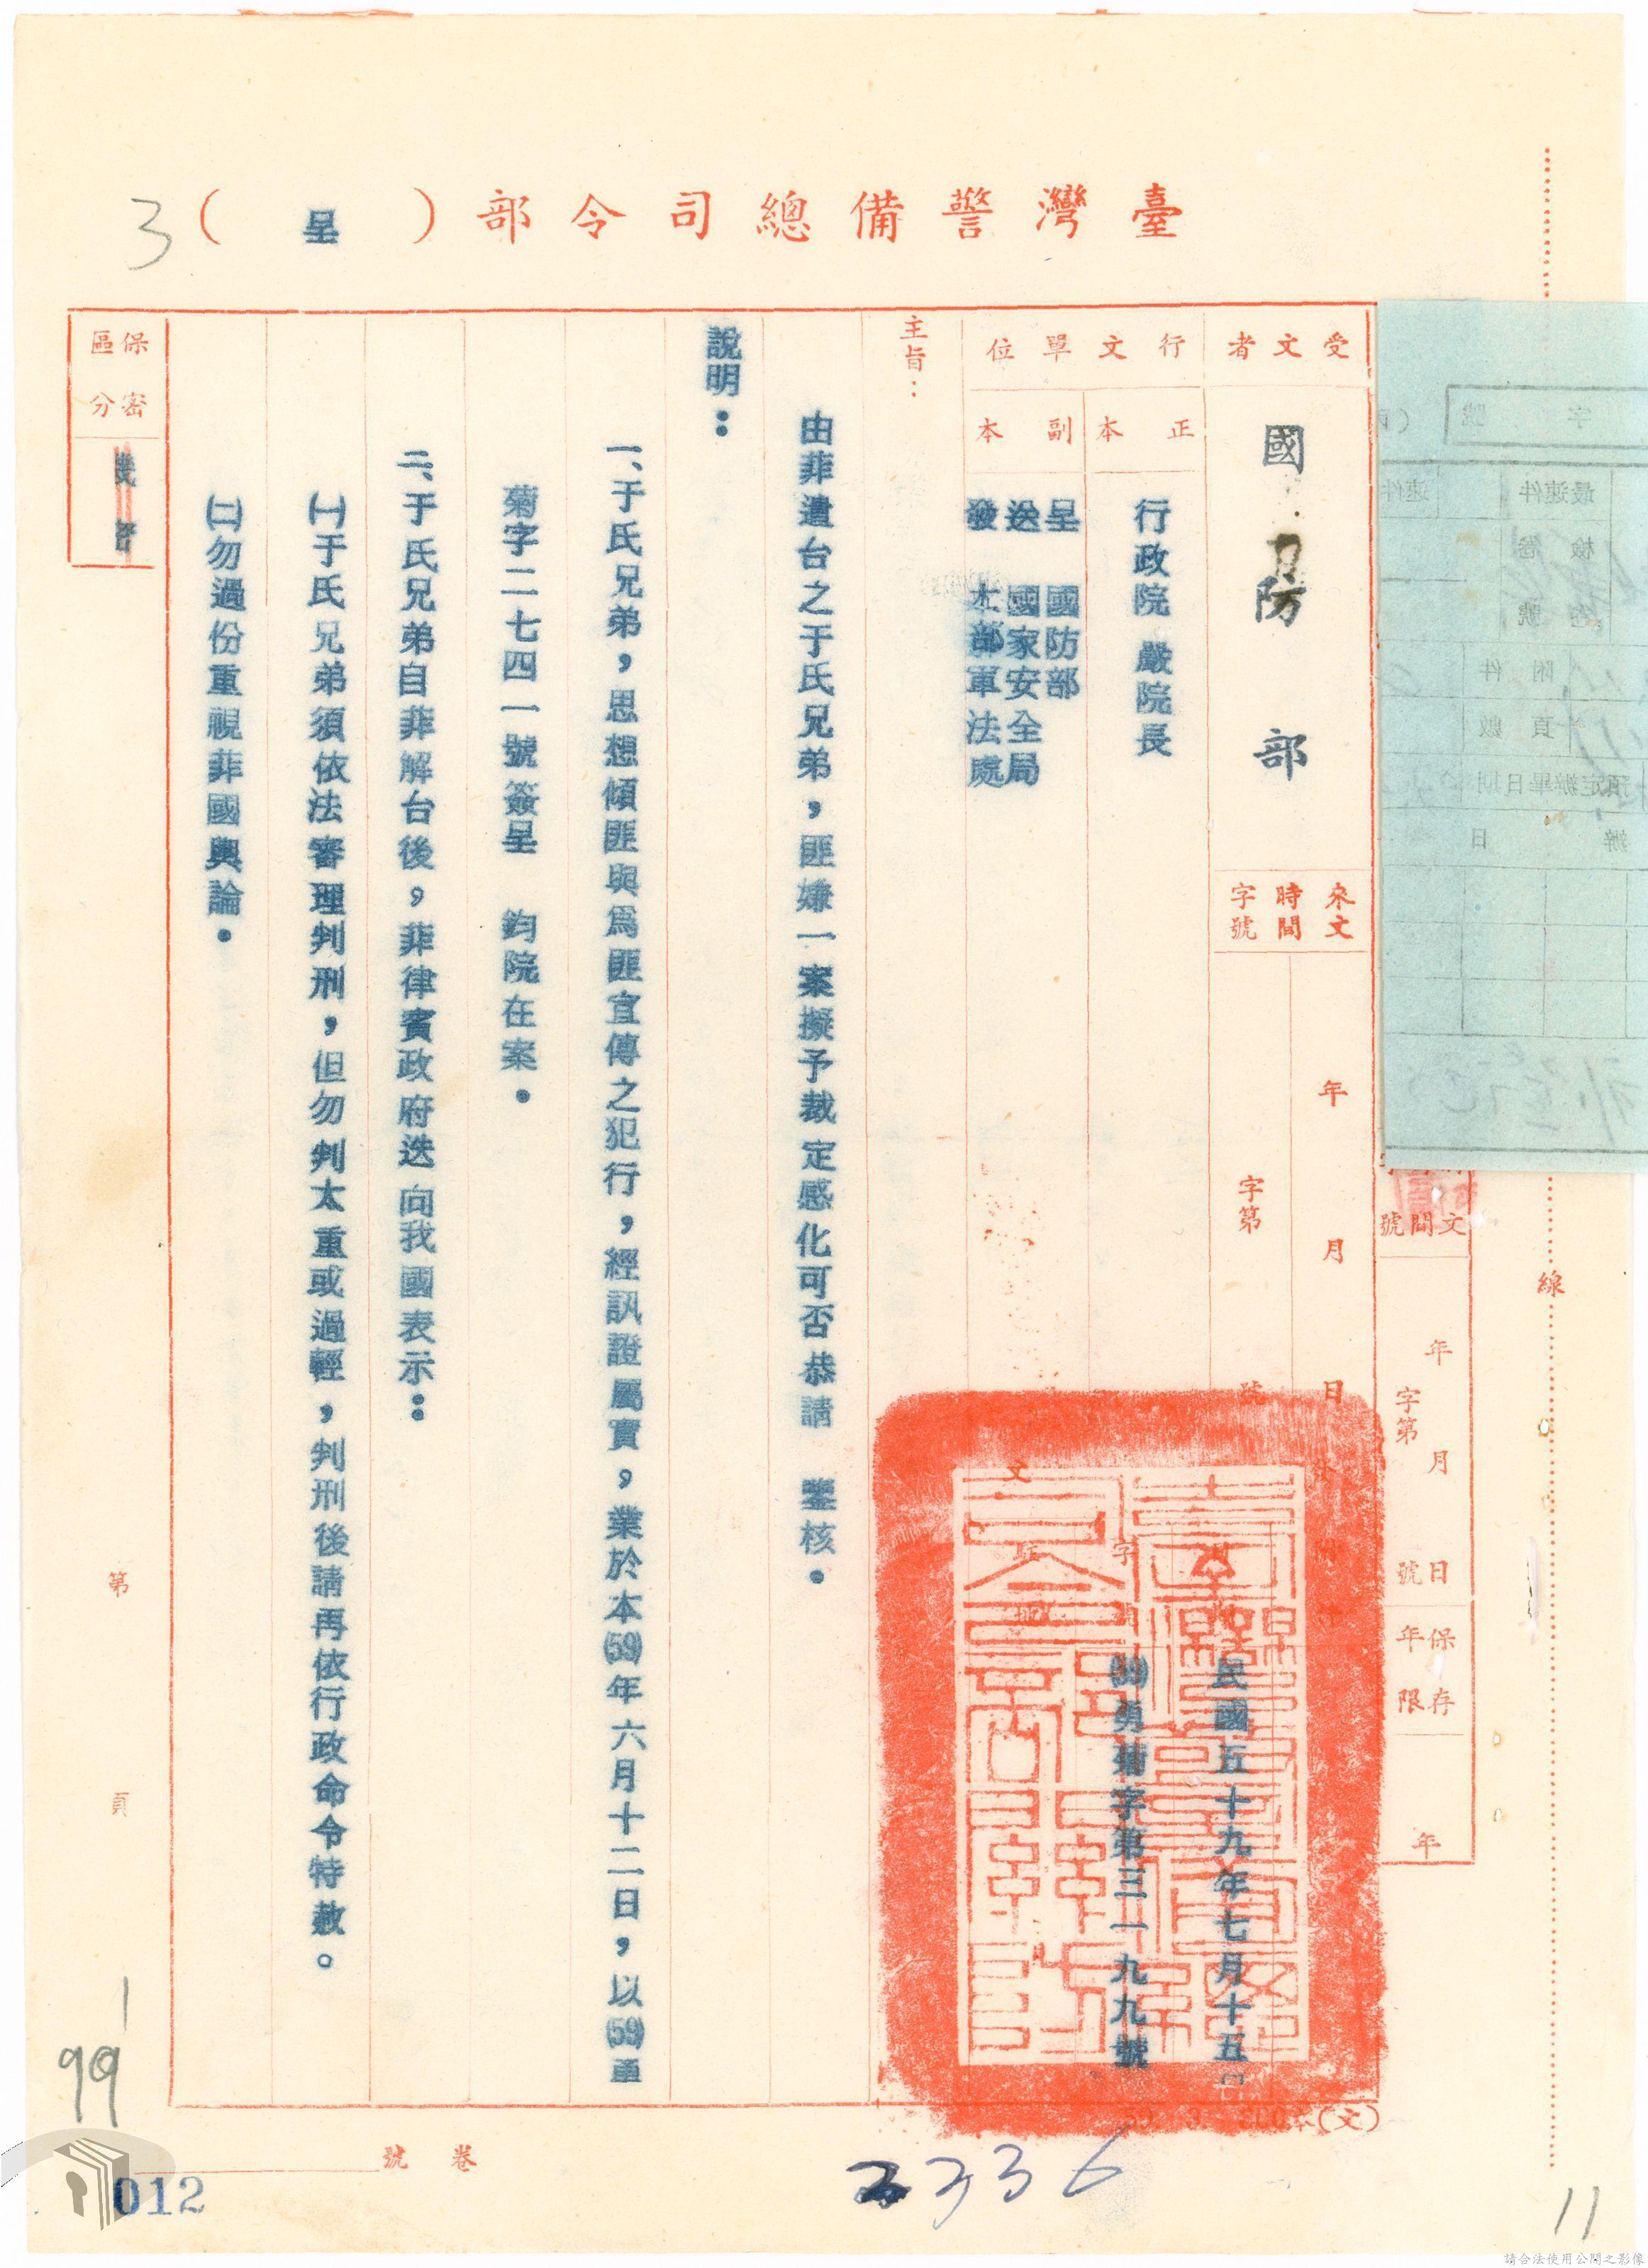 臺灣警備總司令部（呈）
3
受文者
國防部
來文
時間
字號
年　月　日
字第　號
行文單位
正本
行政院　嚴院長
副本
呈　國防部
送　國家安全局
發　本部軍法處
民國五十九年七月十五日
(59)勇菊字第三一九九號
主旨：
由菲遣台之于氏兄弟，匪嫌一案擬予裁定感化可否恭請　鑒核．
說明：
一、于氏兄弟，思想傾匪與為匪宣傳之犯行，經訊證屬實，業於本(59)年六月十二日，以(59)勇
菊字二七四一號簽呈　鈞院在案．
二、于氏兄弟自菲解台後，菲律賓政府迭向我國表示：
㈠于氏兄弟須依法審理判刑，但勿判太重或過輕，判刑後請再依行政命令特赦。
㈡勿過份重視菲國輿論．
保密區分
機密
第　頁
卷號
99
012
3336
11
線
文間號
年　月　日
字第　號
保存年限
年
字　號
最速件
速件
檢卷
號
附件
頁數
預定辦畢日期
辦　日
(文)
請合法使用公開之影像